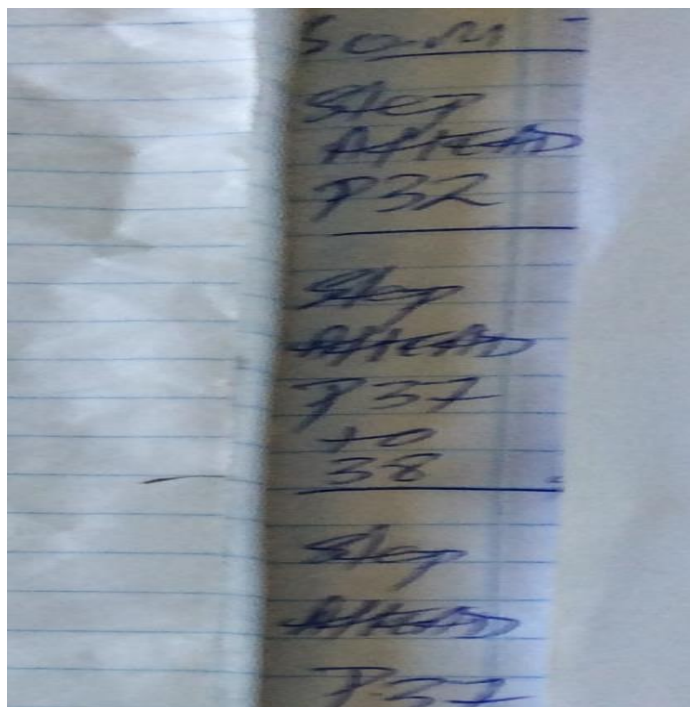 Step
AHEAD
P32
Step
AHEAD
P37
to
38
Step
AHEAD
P37